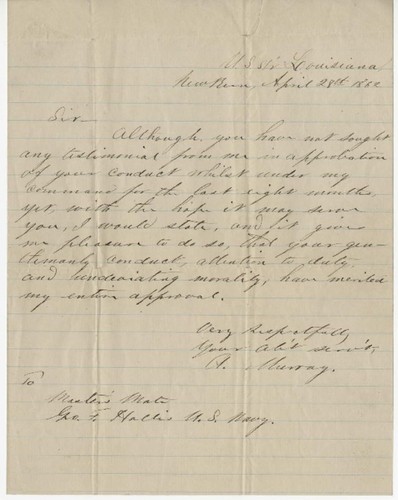 U.S. Str Louisiana
New Bern, April 28th 1862
Sir.
Although you have not sought
any testimonial from me in approbation
of your conduct whilst under my
command for the last eight months,
yet, with the hope it may serve
you, I would state, and it gives
me pleasure to do so, that your gen-
tlemanly conduct, attention to duty
and undeviating morality, have merited
my entire approval.
Very respectfully
Your Obt servt,
A. Murray.
To
Master's Mate
Geo. F. Hollis U.S. Navy.